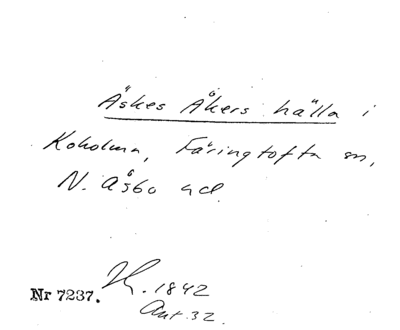 Äskes Åkers hälla i
Koholma, Färingtofta sn,
N. Åsbo hd.
Nr 7237. 1842
Ant. 32.